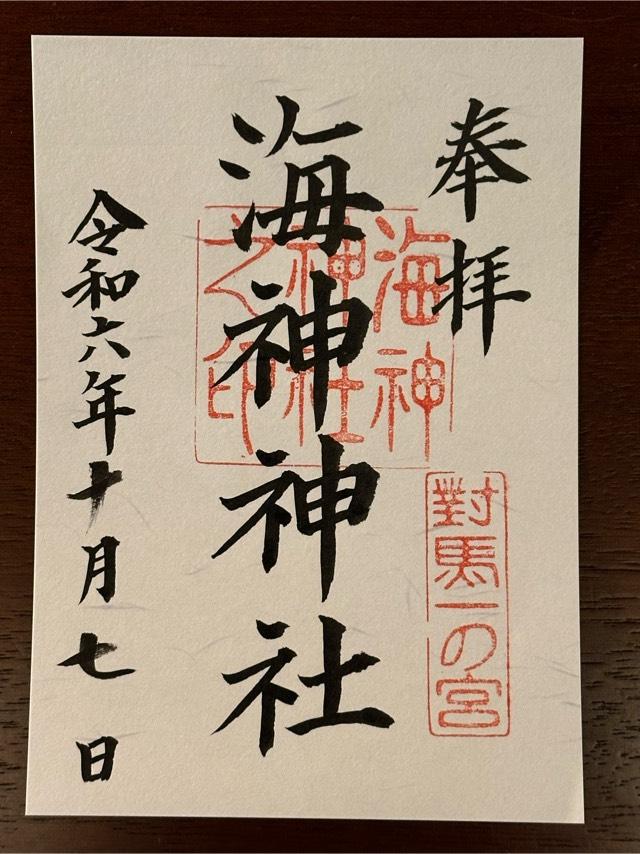 奉拝
對馬一の宮
海神神社
海神神社之印
令和六年十月七日